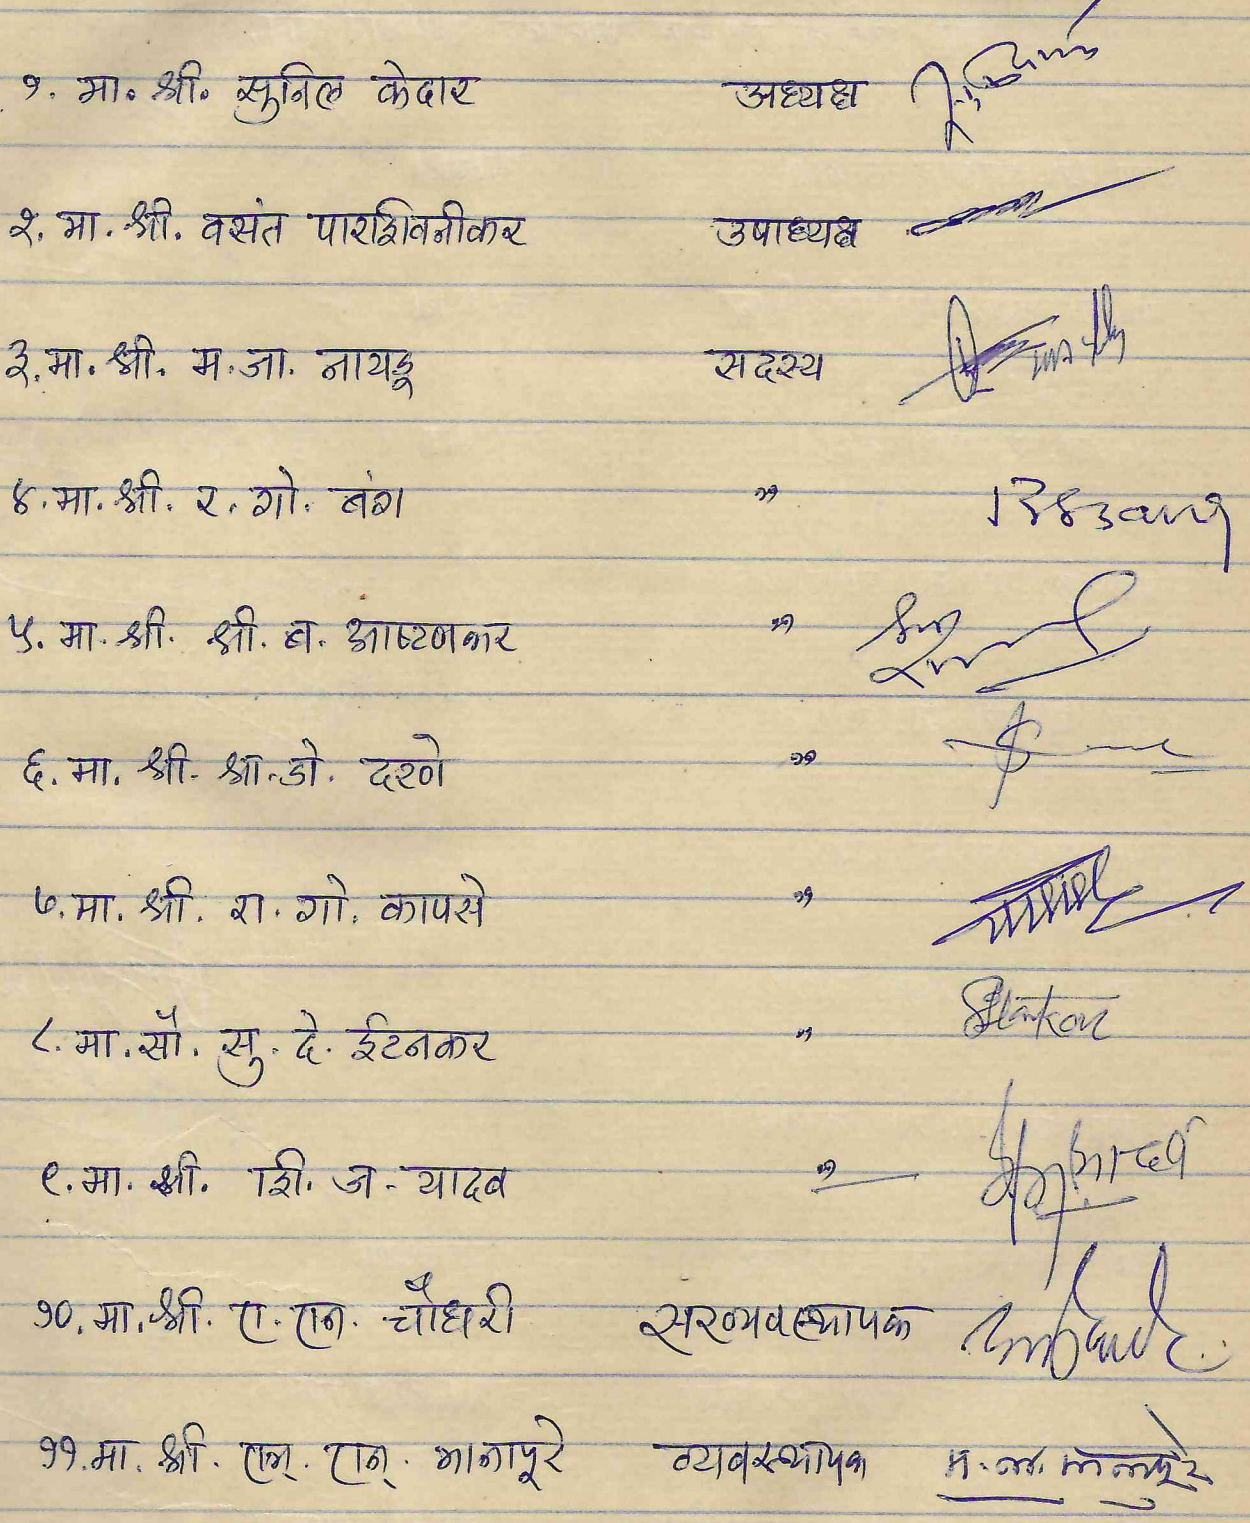 १. मा. श्री. सुनिल केदार अध्यक्ष
२. मा. श्री. वसंत पारशिवनीकर उपाध्यक्ष
३. मा. श्री. म. जा. नायडू सदस्य
४. मा. श्री. र. गो. बंग "
५. मा. श्री. श्री. ब. आष्टणकर "
६. मा. श्री. श्रा. डो. दरणे "
७. मा. श्री. रा. गो. कापसे "
८. मा. सौ. सु. दे. ईटनकर "
९. मा. श्री. शि. ज. यादव "
१०. मा. श्री. ए. एन. चौधरी सरव्यवस्थापक
११. मा. श्री. एम. एन. मानापूरे व्यवस्थापक